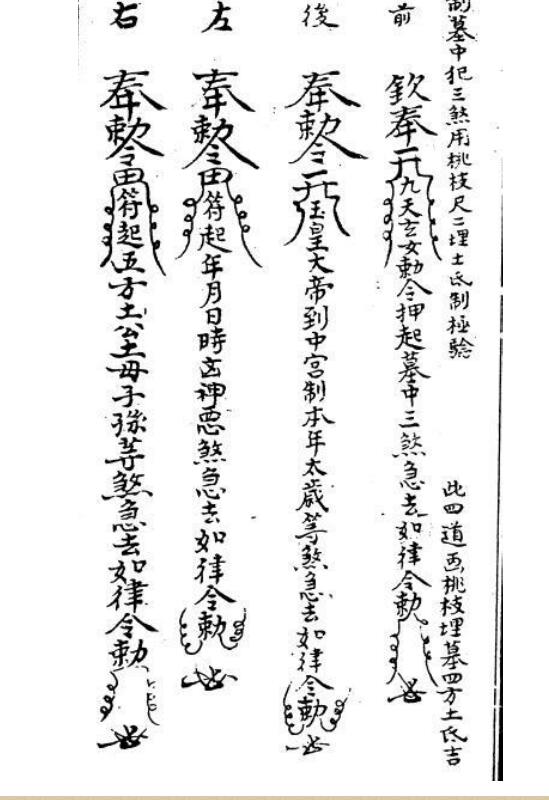 制墓中犯三煞用桃枝尺二埋土氏制極驗
此四道画桃枝埋墓四方土氏吉
前
欽奉九天玄女勅令押起墓中三煞急去如律令勅
後
奉勅令玉皇大帝到中宮制本年太歲等煞急去如律令勅
左
奉勅令符起年月日時凶神惡煞急去如律令勅
右
奉勅令符起五方土公土母子孫等煞急去如律令勅